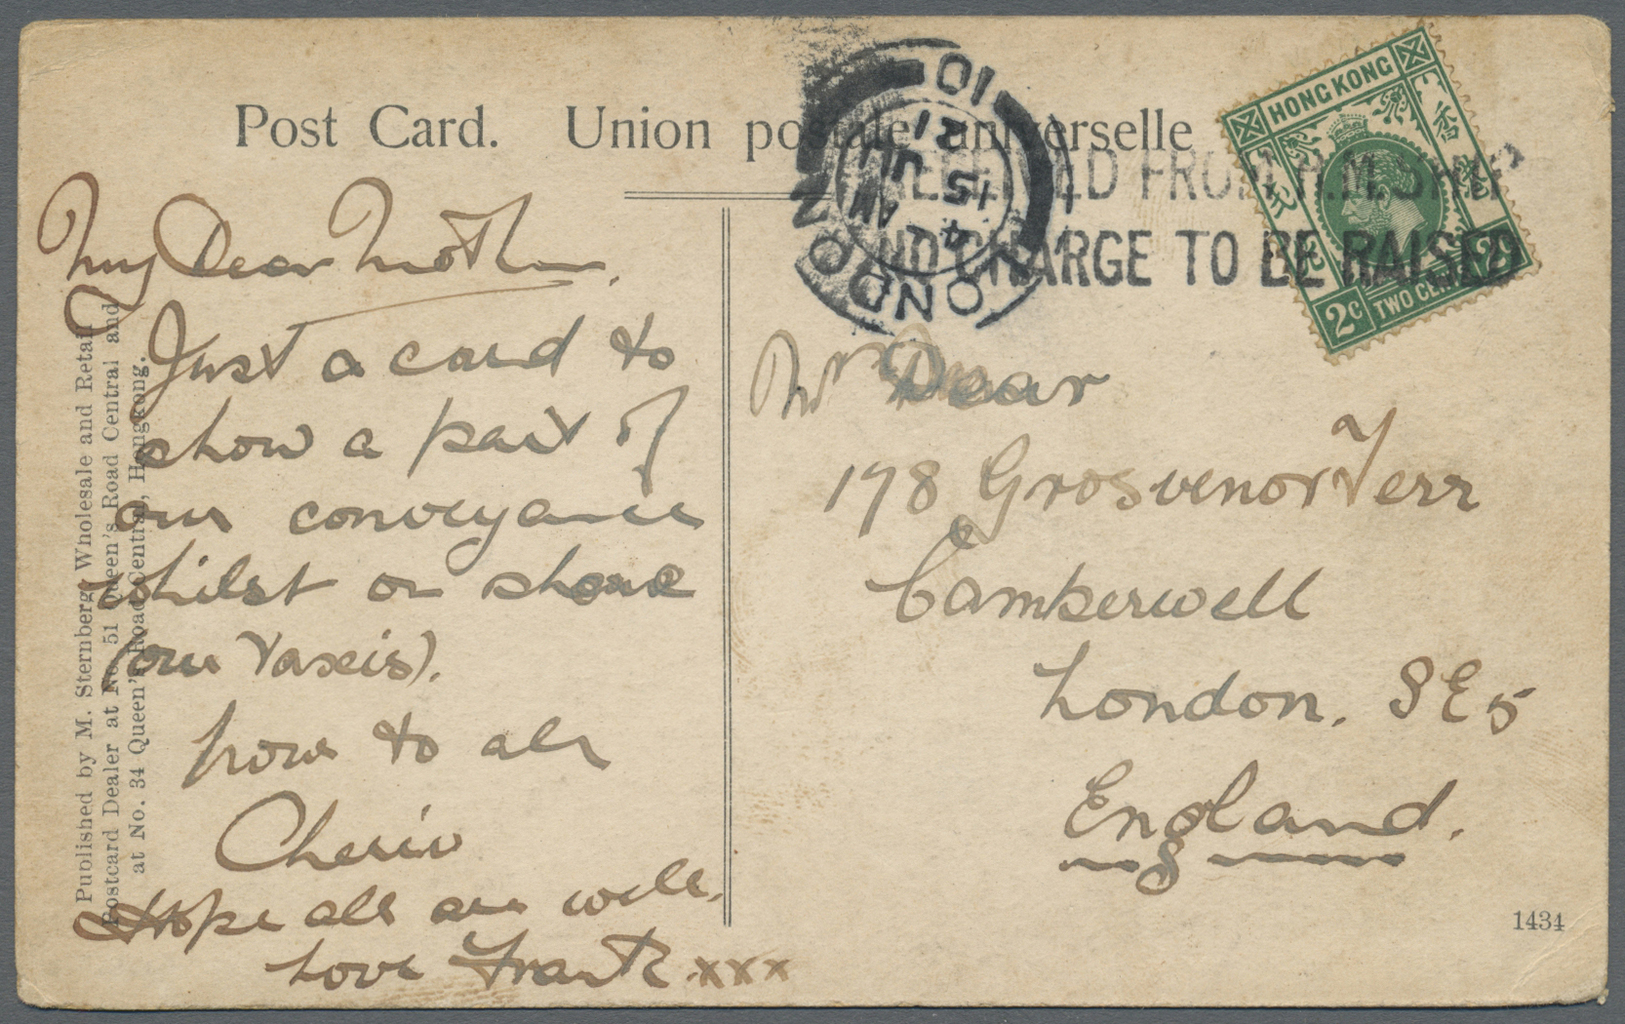 Post Card. Union postale universelle
HONG KONG
香
港
2c
TWO CENTS
2c
LONDON 10
4 15 AM
JU
21
RECEIVED FROM H.M. SHIP
NO CHARGE TO BE RAISED
My Dear Mother.
Just a card to
show a part of
our conveyance
whilst on shore
(our Taxis).
love to all
Cheerio
Hope all are well.
Love Frank xxx
Mrs Dear
178 Grosvenor Terr
Camberwell
London. SE5
England.
Published by M. Sternberg, Wholesale and Retail
Postcard Dealer at No. 51 Queen's Road Central and
at No. 34 Queen's Road Central, Hongkong.
1434